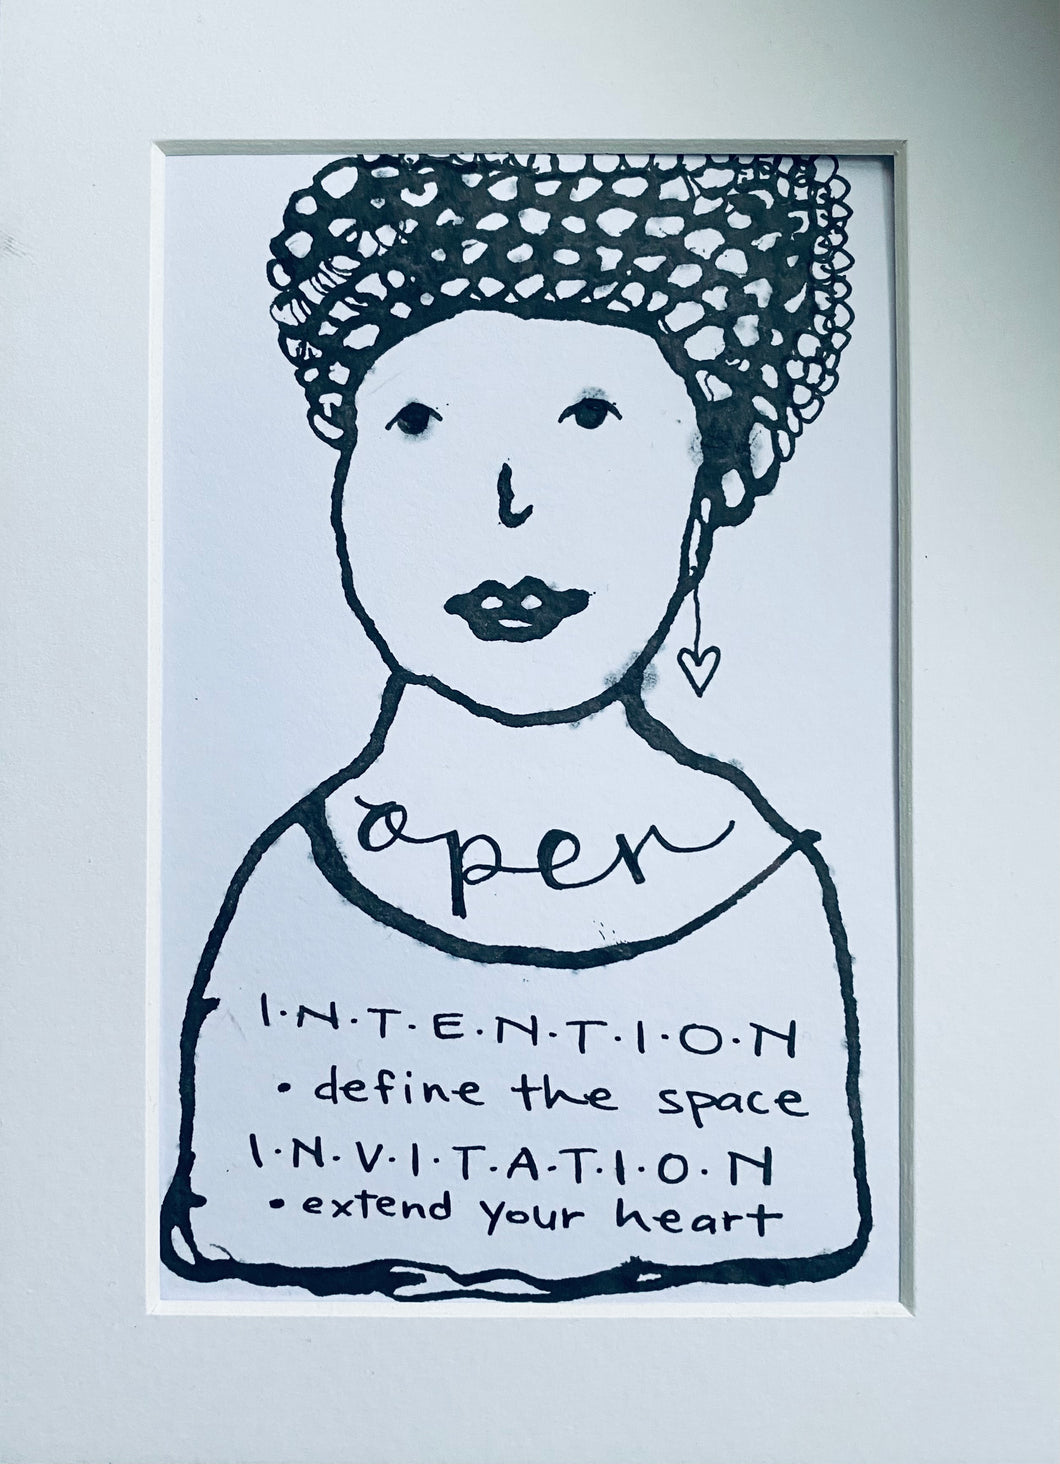 open
I·N·T·E·N·T·I·O·N
• define the space
I·N·V·I·T·A·T·I·O·N
• extend your heart